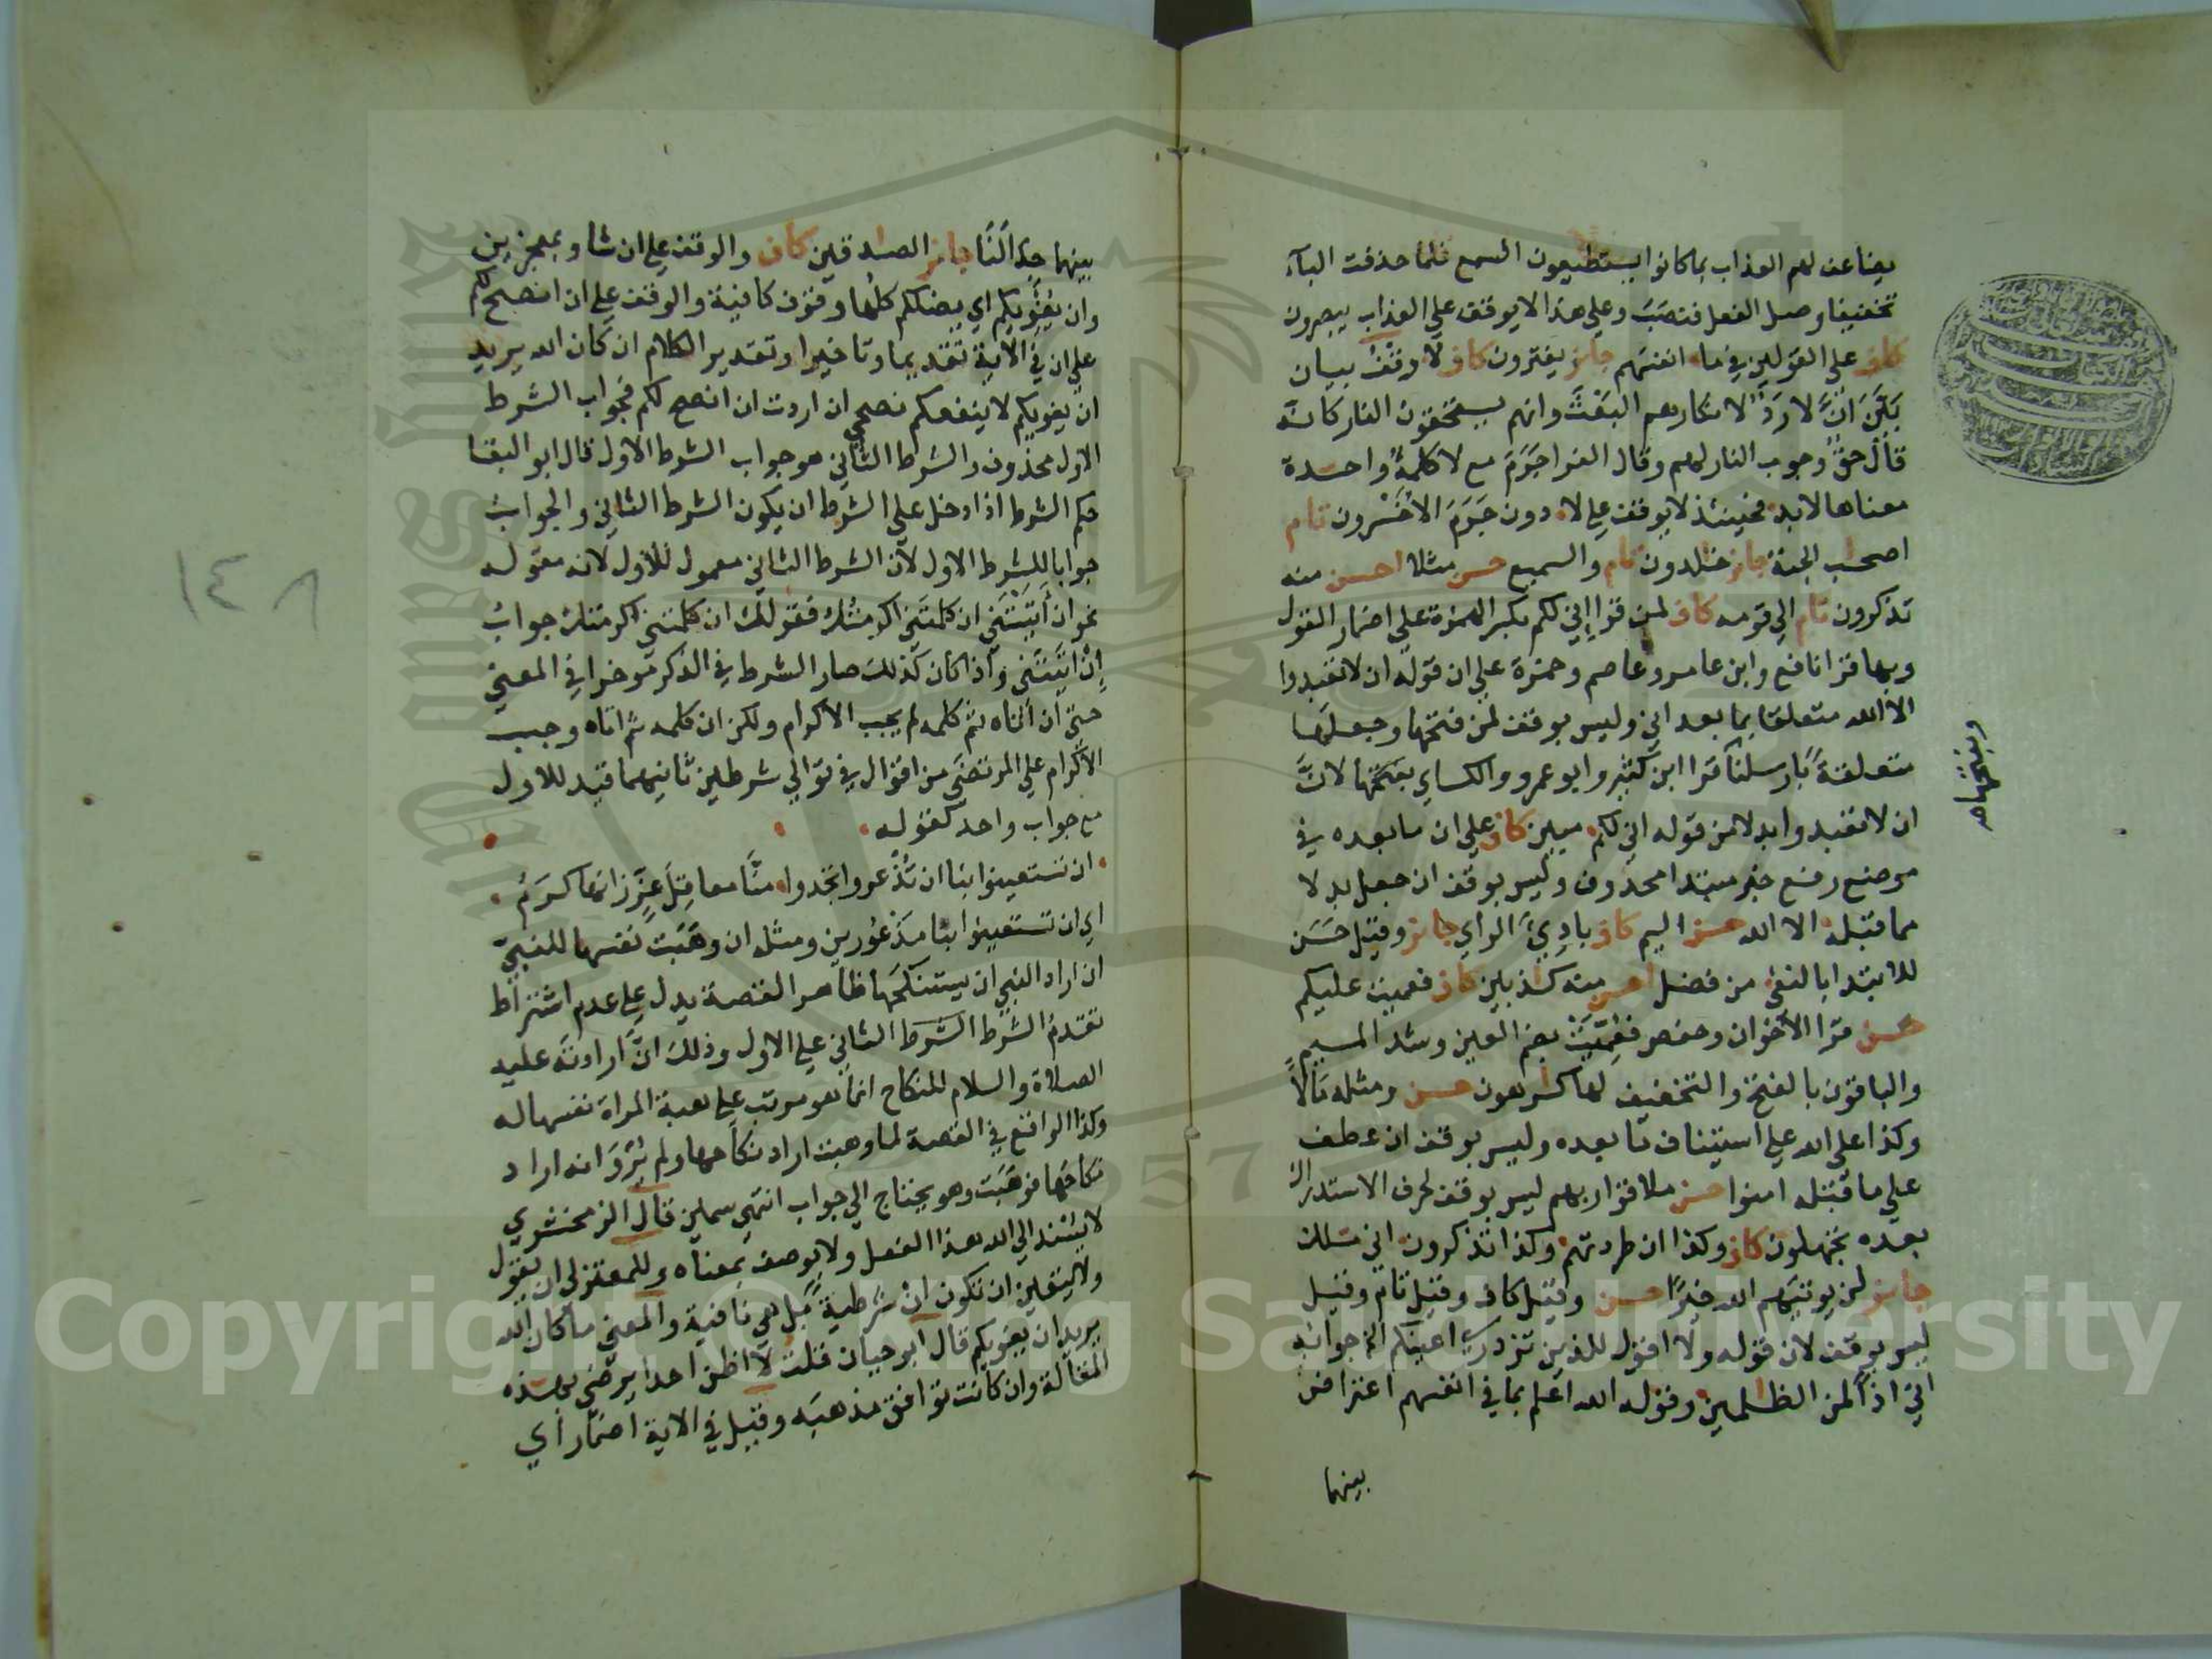 يضاعف لهم العذاب بما كانوا يستطيعون السمع فلما حذفت الباء
تخفيفا وصل الفعل فنصب وعلى هذا لا يوقف علي العذاب يبصرون
كاف علي القولين في ما انفسهم جائز يفترون كاف لا وقف بيان
بلن ان لا رد لانكارهم البعث وانهم يستحقون النار كانه
قال حق وجوب النار لهم وقال الفرا جرم مع لا كلمة واحدة
معناها لابد فحينئذ لا يوقف علي لا دون جرم الاخسرون تام
اصحب الجنة جائز خلدون تام والسميع حسن مثلا احسن منه
تذكرون تام الي قومه كاف لمن قرا اني لكم بكسر الهمزة علي اضمار القول
وبها قرا نافع وابن عامر وعاصم وحمزة علي ان قوله ان لا تعبدوا
الا الله متعلقا بما بعد اني وليس بوقف لمن فتحها وجعلها
متعلقة بارسلنا قرا ابن كثير وابو عمرو والكساي بفتحها لان
ان لا تعبدوا بدلا من قوله اني لكم مبين كاف علي ان ما بعده في
موضع رفع خبر مبتدا محذوف وليس بوقف ان جعل بدلا
مما قبله الا الله حسن اليم كاف بادي الراي جائز وقيل حسن
للابتدا بالنفي من فضل احسن منه كذبين كاف فعميت عليكم
حسن قرا الاخوان وحفص فعميت بضم العين وشد الميم
والباقون بالفتح والتخفيف لها كرهون حسن ومثله مالا
وكذا علي الله علي استيناف ما بعده وليس بوقف ان عطف
علي ما قبله امنوا حسن ملاقوا ربهم ليس بوقف لحرف الاستدراك
بعده تجهلون كاف وكذا ان طردتهم وكذا تذكرون اني ملك
جائز لن يوتيهم الله خيرا حسن وقيل كاف وقيل تام وقيل
ليس بوقف لان قوله ولا اقول للذين تزدري اعينكم الخ جوابه
اني اذا لمن الظلمين وقوله الله اعلم بما في انفسهم اعتراض
بينهما
بينهما جدالنا جائز الصدقين كاف والوقف علي ان شا وبمعجزين
وان يغويكم اي يضلكم كلها وقوف كافية والوقف علي ان انصح لكم
علي ان في الاية تقديما وتاخيرا وتقدير الكلام ان كان الله يريد
ان يغويكم لا ينفعكم نصحي ان اردت ان انصح لكم فجواب الشرط
الاول محذوف والشرط الثاني هو جواب الشرط الاول قال ابو البقا
حكم الشرط اذا دخل علي الشرط ان يكون الشرط الثاني والجواب
جوابا للشرط الاول لان الشرط الثاني معمول للاول لانه مقوله
نحو ان اتيتني ان كلمتني اكرمتك فقولك ان كلمتني اكرمتك جواب
ان اتيتني واذا كان كذلك صار الشرط في الذكر موخرا في المعني
حتي ان اتاه ثم كلمه لم يجب الاكرام ولكن ان كلمه ثم اتاه وجب
الاكرام علي المرتضي من اقوال في توالي شرطين ثانيهما قيد للاول
مع جواب واحد كقوله
ان تستعينوا بنا ان تذعروا تجدوا منا معاقل عز زانها كرم
اي ان تستعينوا بنا مذعورين ومثله ان وهبت نفسها للنبي
ان اراد النبي ان يستنكحها ظاهر القصة يدل علي عدم اشتراط
تقدم الشرط الشرط الثاني علي الاول وذلك ان ارادته عليه
الصلاة والسلام للنكاح انما هو مرتب علي هبة المراة نفسها له
وكذا الواقع في القصة لما وهبت اراد نكاحها ولم يرو انه اراد
نكاحها فوهبت وهو يحتاج الي جواب انتهي سمين قال الزمخشري
لا يسند الي الله هذا الفعل ولا يوصف بمعناه وللمعتزلي ان يقول
ولا يتعين ان تكون ان شرطية بل هي نافية والمعني ما كان الله
يريد ان يغويكم قال ابو حيان قلت لا اظن احدا يرضي بهذه
المقالة وان كانت توافق مذهبه وقيل في الاية اضمار اي
١٤٨
Copyright © King Saud University
1957